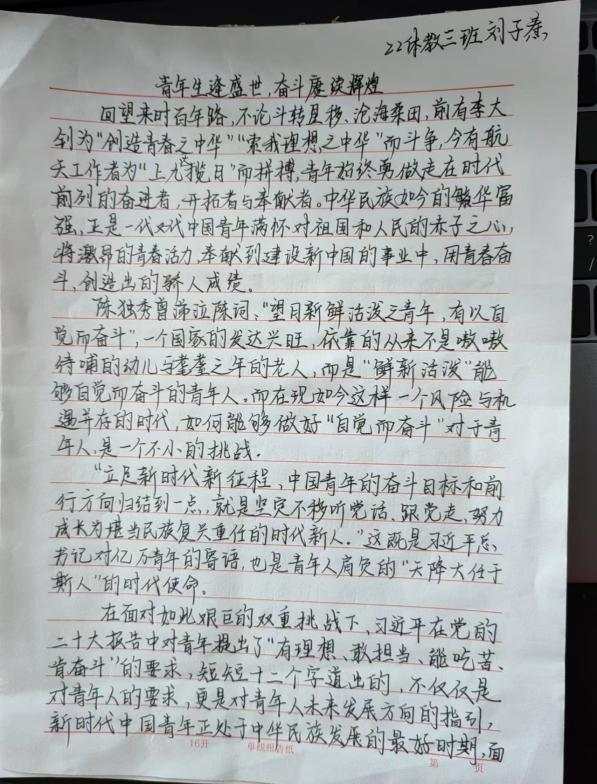 22体教三班 刘子
青年生逢盛世,奋斗赓续辉煌
回望来时百年路,不论斗转星移、沧海桑田,前有李大
钊为“创造青春之中华”“索我理想之中华”而斗争,今有航
天工作者为“上九揽日”而拼搏,青年始终勇做走在时代
前列的奋进者,开拓者与奉献者。中华民族如今的繁华富
强,正是一代又代中国青年满怀对祖国和人民的赤子之心,
将激昂的青春活力,奉献到建设新中国的事业中,用青春奋
斗,创造出的骄人成绩。
陈独秀曾涕泣陈词,“望日新鲜活泼之青年,有以自
觉而奋斗”,一个国家的发达兴旺,依靠的从来不是嗷嗷
待哺的幼儿与耄耋之年的老人,而是“鲜新活泼”能
够自觉而奋斗的青年人。而在现如今这样一个风险与机
遇并存的时代,如何能够做好“自觉而奋斗”对于青
年人,是一个不小的挑战。
“立足新时代新征程,中国青年的奋斗目标和前
行方向归结到一点,就是坚定不移听党话、跟党走,努力
成长为堪当民族复兴重任的时代新人。”这既是习近平总
书记对亿万青年的寄语,也是青年人肩负的“天降大任于
斯人”的时代使命。
在面对如此艰巨的双重挑战下,习近平在党的
二十大报告中对青年提出了“有理想、敢担当、能吃苦、
肯奋斗”的要求,短短十二个字道出的,不仅仅是
对青年人的要求,更是对青年人未来发展方向的指引,
新时代中国青年正处于中华民族发展的最好时期,面
16开 单线报告纸 第 页